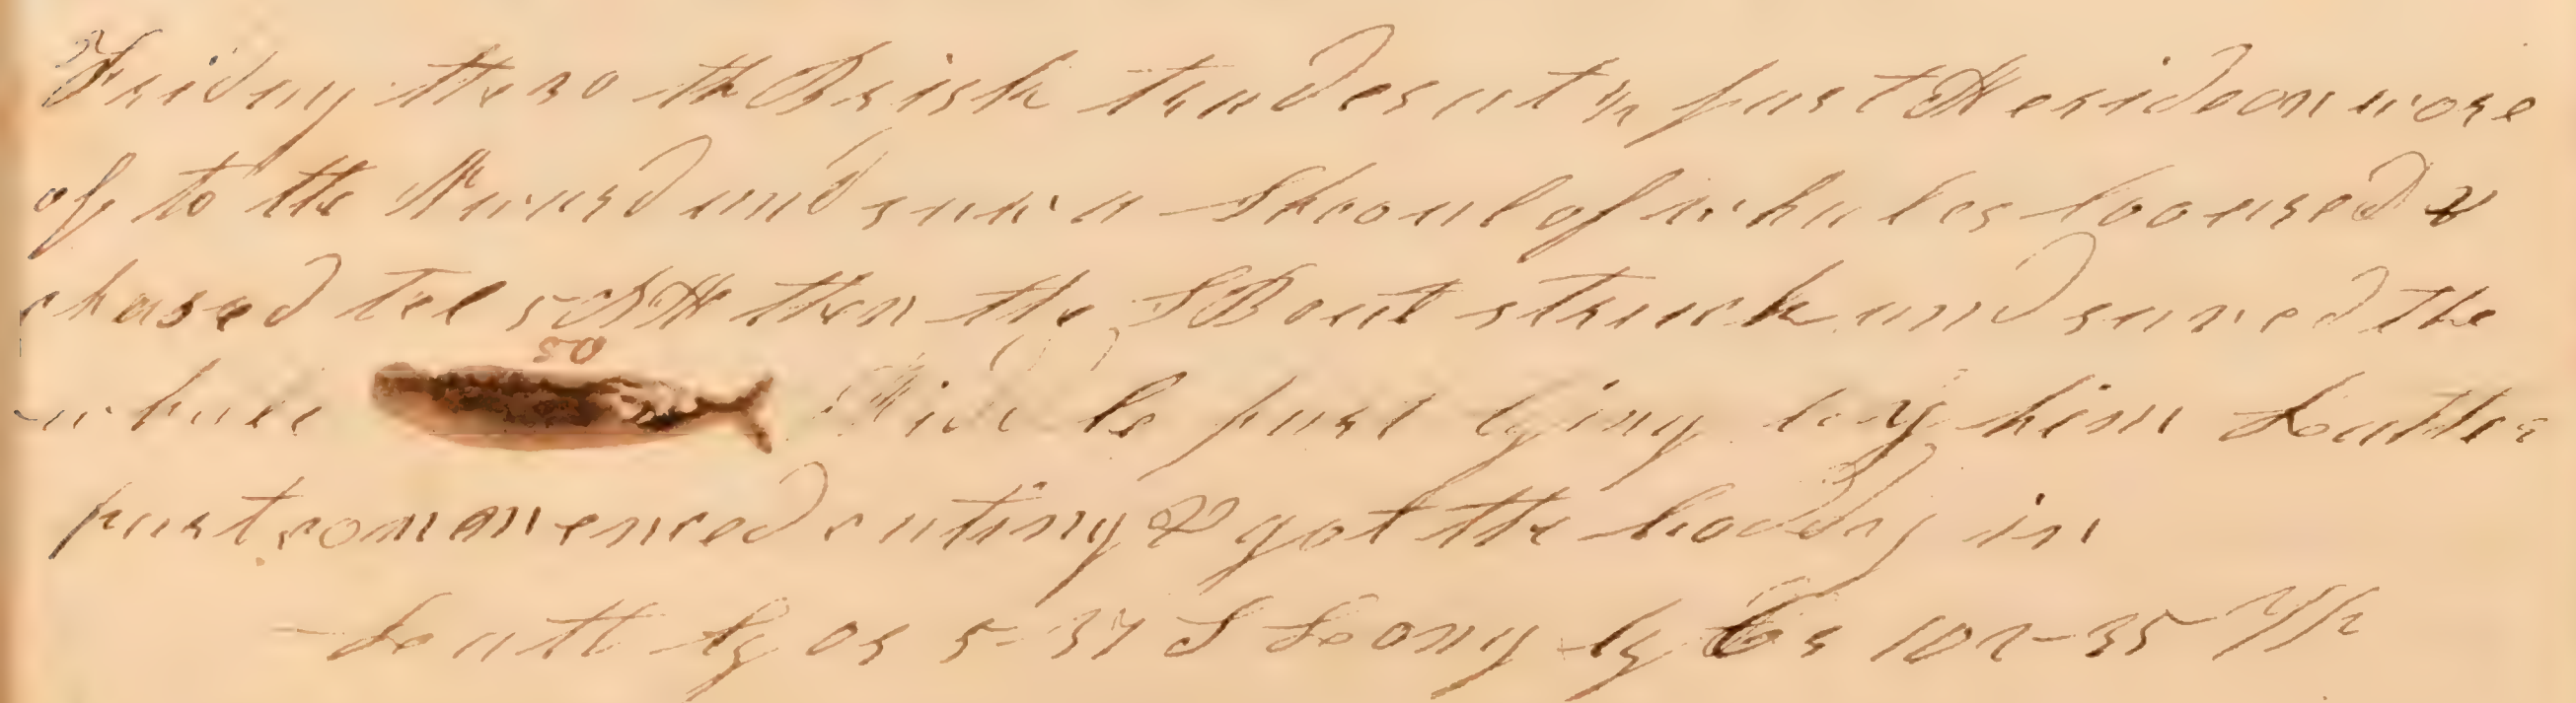 Friday the 30 th Brisk trades at ½ past Meridean wore
of to the Nward and saw a Shooul of whales looured &
chased tel 5 PM then the SBoat struck and saved the
whale
Midle part lying by him Latter
part commenced cuting & got the boddy in
Latt by os 5-37 S Long by Os 102-35 W